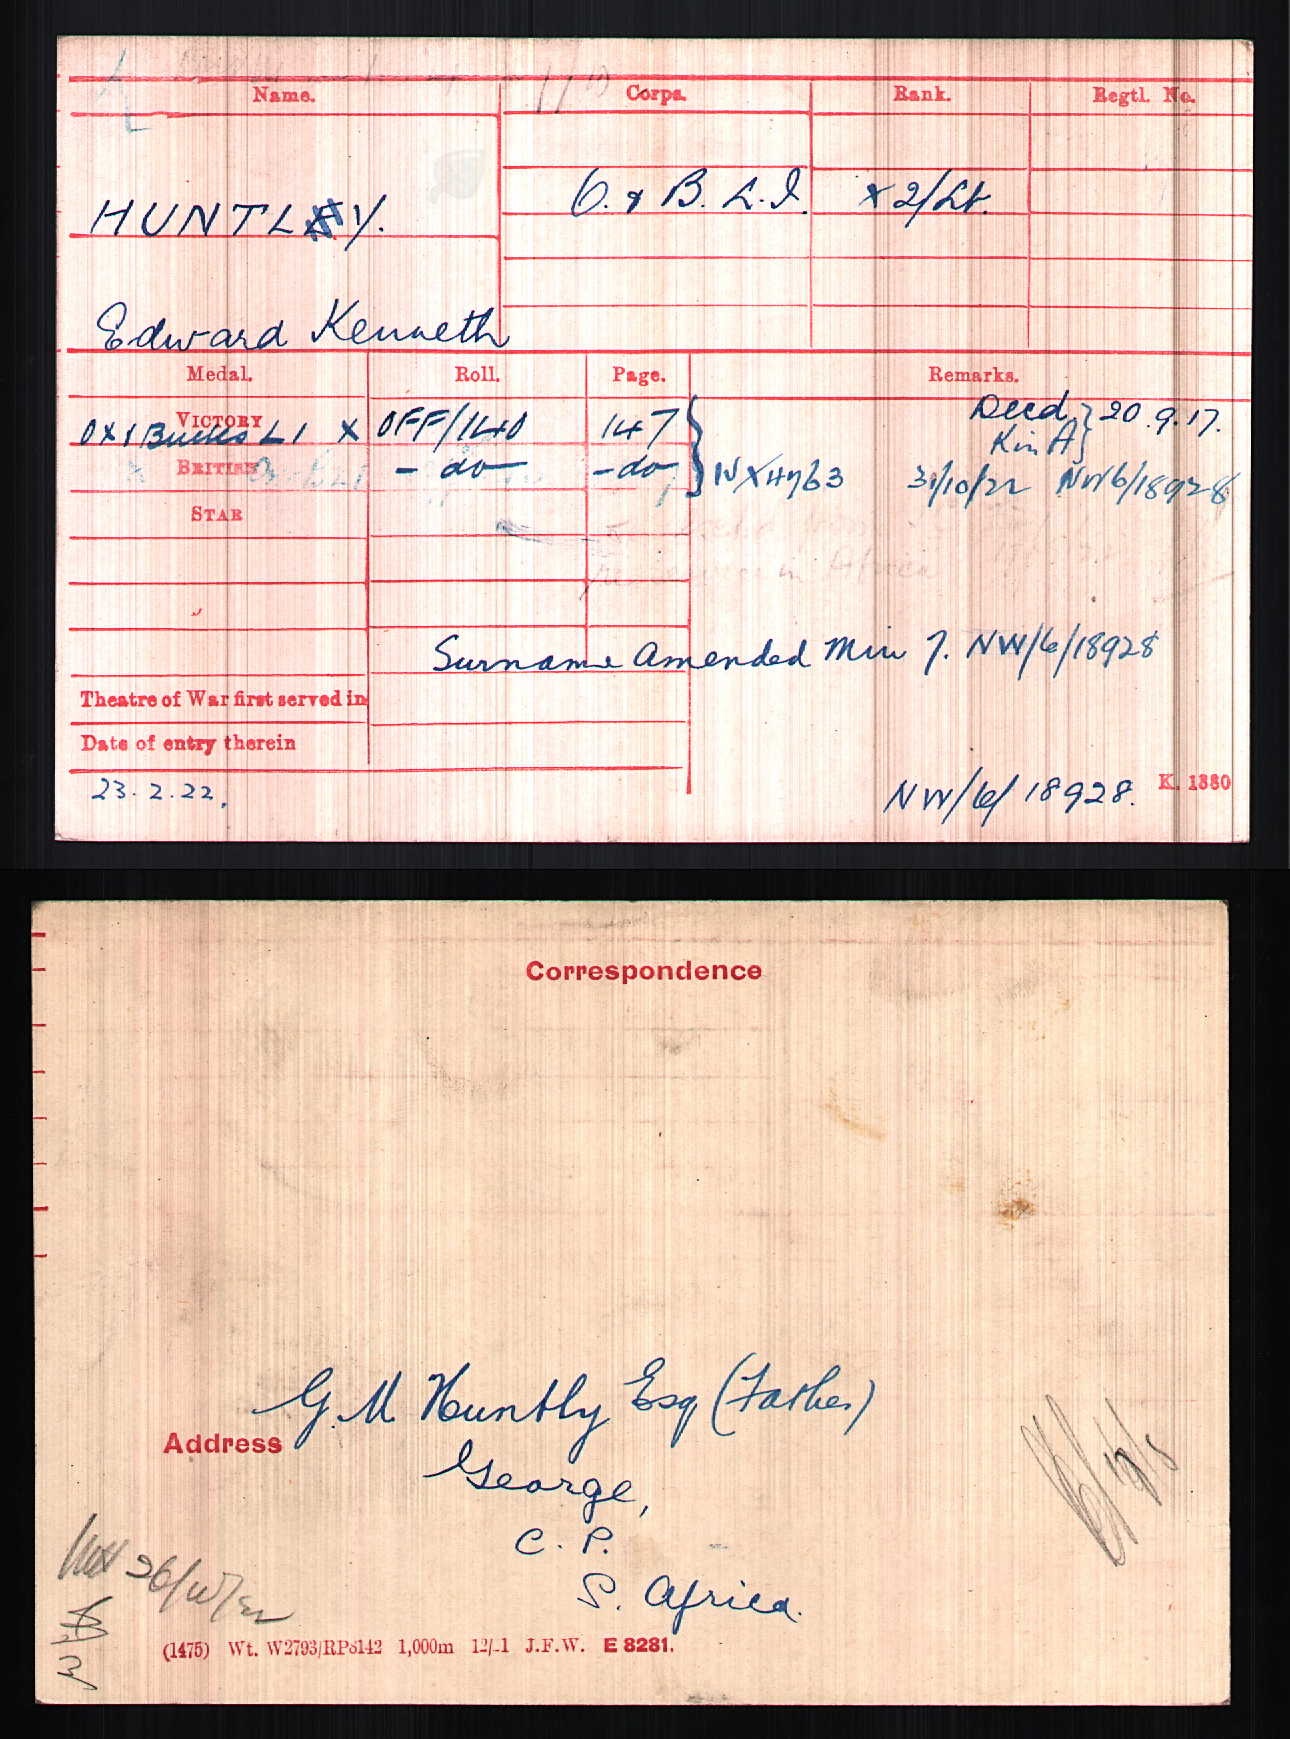 Name. Corps. Rank. Regtl. No.
HUNTLY. O. & B. L. I. x 2/Lt.
Edward Kenneth
Medal. Roll. Page. Remarks.
VICTORY OX & Bucks L I X OFF/140 147 Decd } 20.9.17.
Kin A }
BRITISH - do - - do - NX4763 31/10/22 NW6/18928
STAR
in Africa
Surname Amended Min 7. NW/6/18928
Theatre of War first served in
Date of entry therein
23.2.22. NW/6/18928. K. 1380
Correspondence
G. M Huntly Esq (Father)
Address
George,
C. P.
S. Africa.
(1475) Wt. W2793/RP8142 1,000m 12/-1 J.F.W. E 8281.